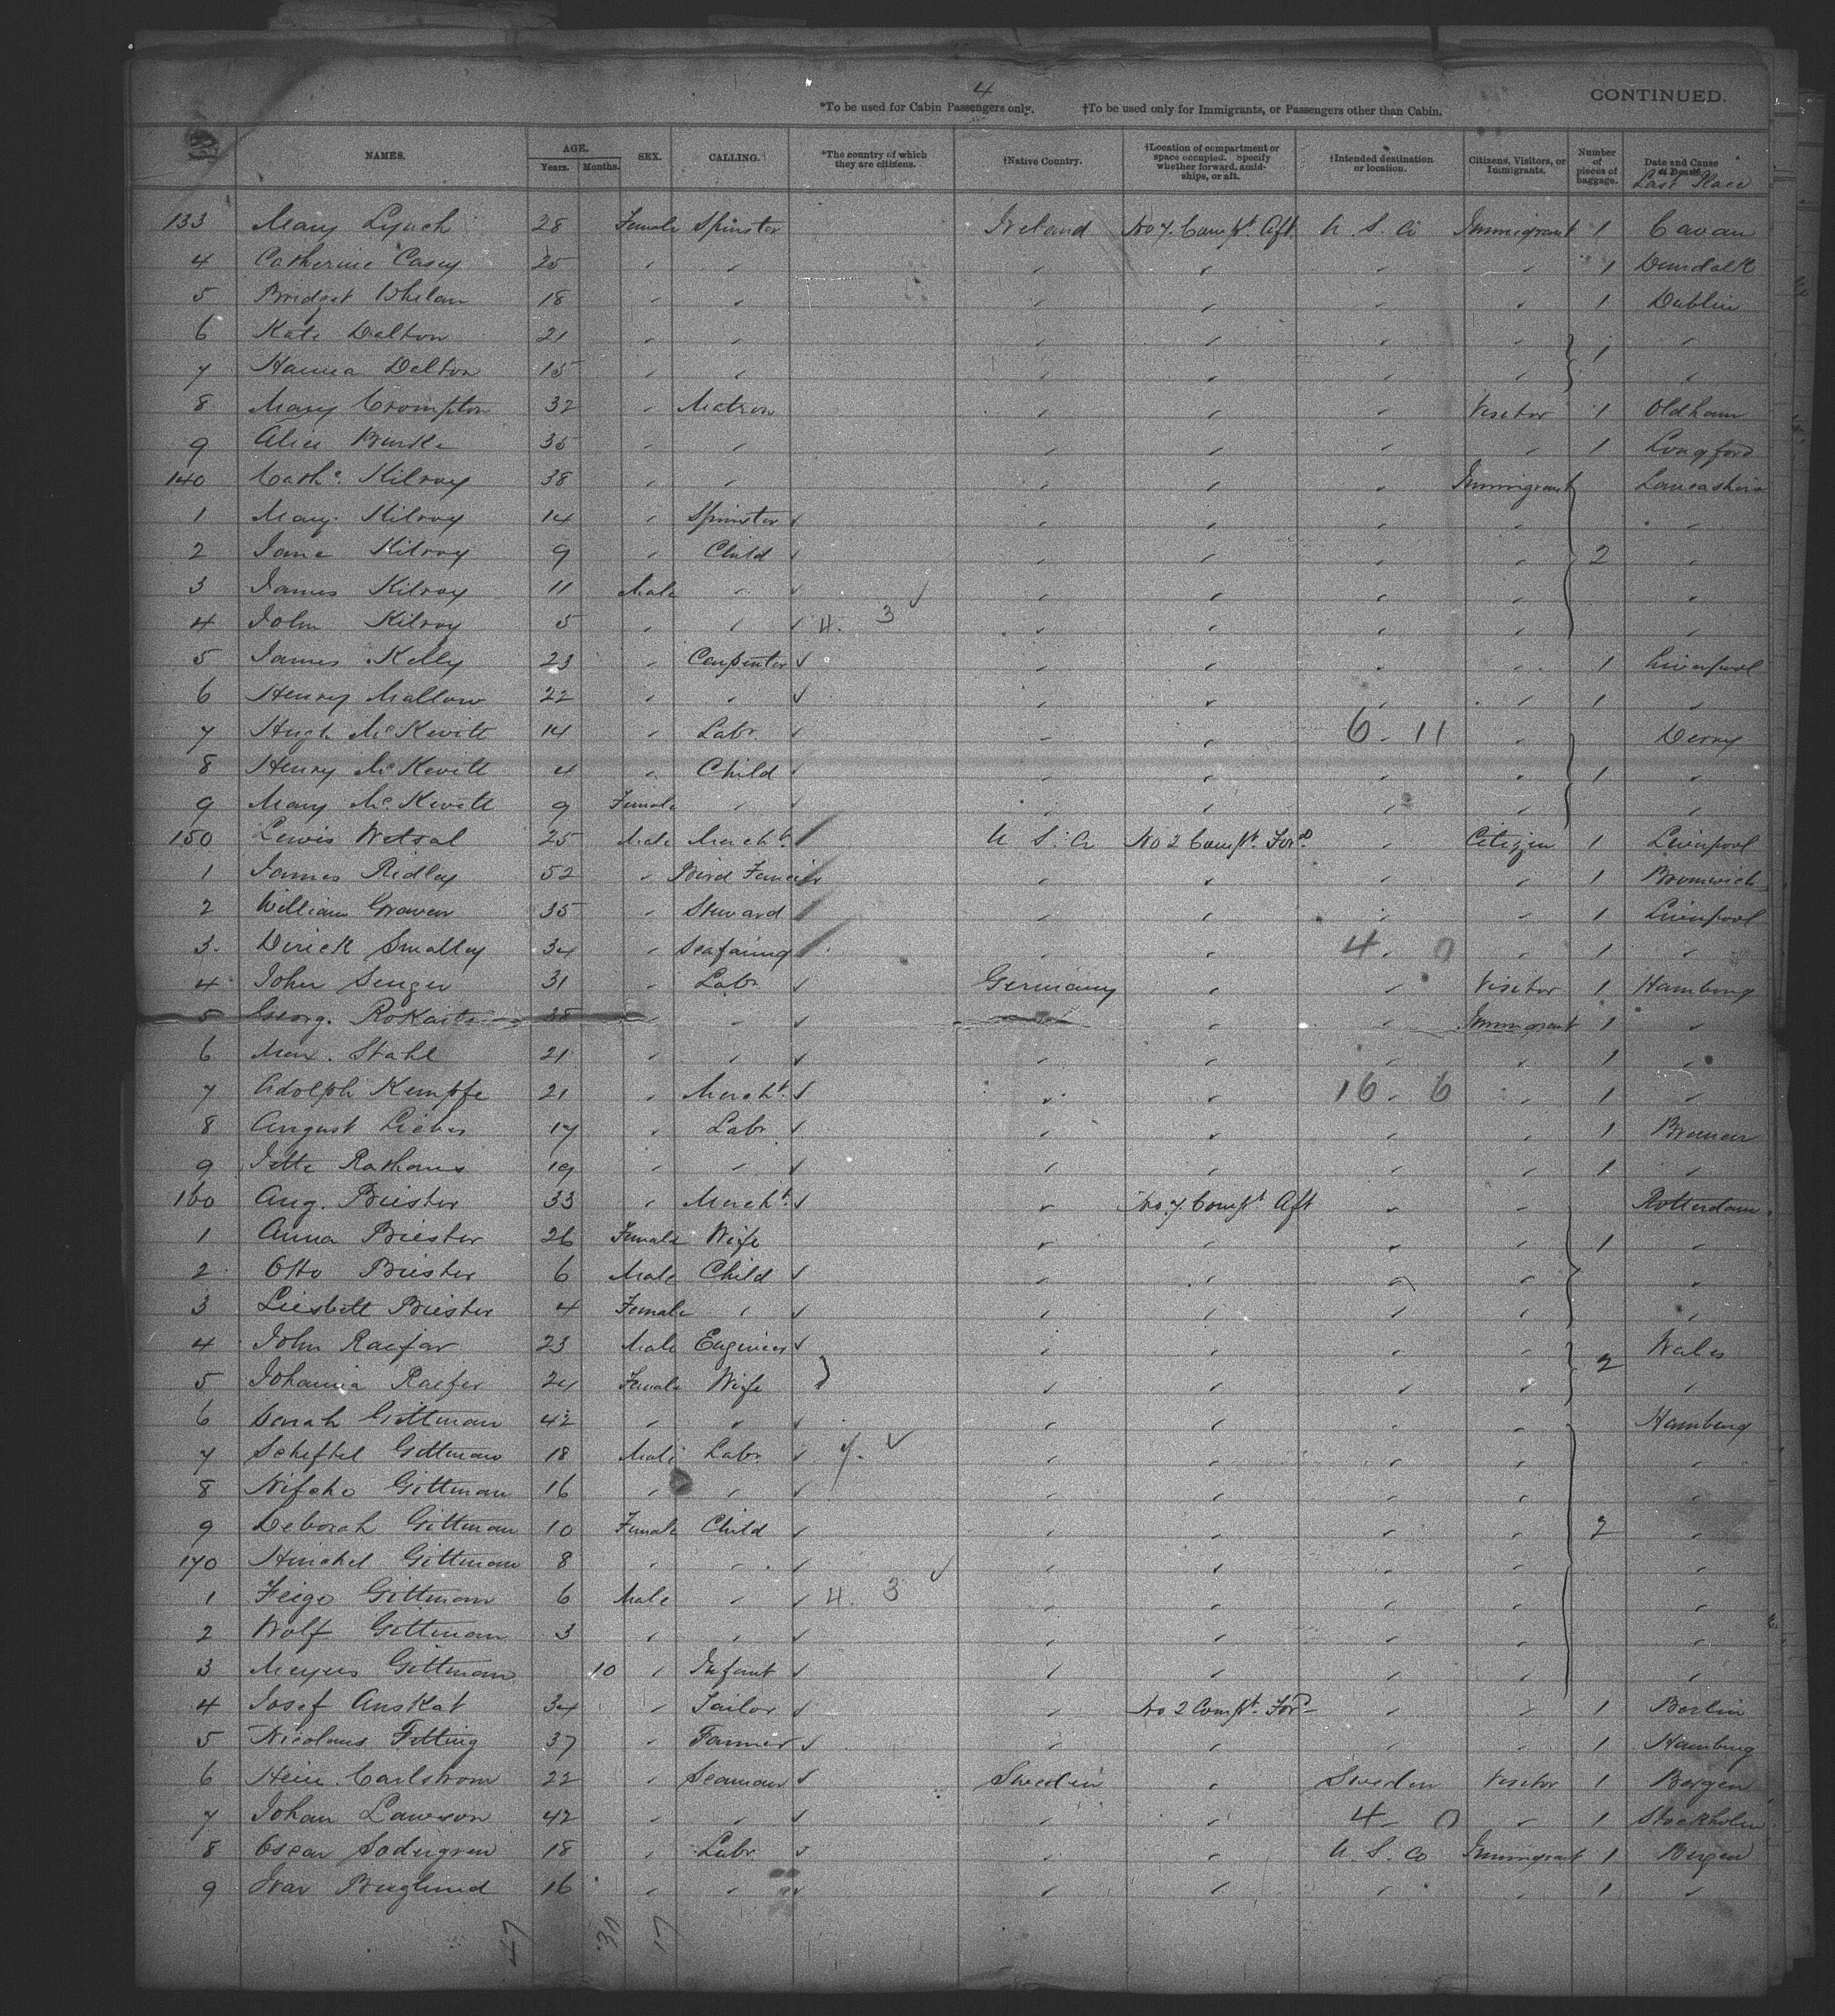 4
*To be used for Cabin Passengers only. †To be used only for Immigrants, or Passengers other than Cabin. CONTINUED.
NAMES. AGE. Years. Months. SEX. CALLING. *The country of which they are citizens. †Native Country. †Location of compartment or space occupied. Specify whether forward, amidships, or aft. †Intended destination or location. Citizens, Visitors, or Immigrants. Number of pieces of baggage. Date and Cause of Death. Last Place
133 Mary Lynch 28 Female Spinster Ireland No 7. Compt. Aft. U. S. A Immigrant 1 Cavan
4 Catherine Casey 25 " " " " " " 1 Dundalk
5 Bridget Whelan 18 " " " " " " 1 Dublin
6 Kate Dalton 21 " " " " " " 1 "
7 Hanna Dalton 15 " " " " " " "
8 Mary Crompton 32 " Matron " " " Visitor 1 Oldham
9 Alice Burke 35 " " " " " " 1 Longford
140 Cathe. Kilroy 38 " " " " " Immigrant Lancashire
1 Mary Kilroy 14 " Spinster " " " " "
2 Jane Kilroy 9 " Child " " " " 2 "
3 James Kilroy 11 Male " " " " " "
4 John Kilroy 5 " " 4. 3 " " " " "
5 James Kelly 23 " Carpenter " " " " 1 Liverpool
6 Henry Mallow 22 " " " " " " 1 "
7 Hugh McKevitt 14 " Labr. " " 6 - 11 " Derry
8 Henry McKevitt 4 " Child " " " " 1 "
9 Mary McKevitt 9 Female " " " " " "
150 Lewis Wetsal 25 Male Mercht. U S. A No 2 Compt. Ford. " Citizen 1 Liverpool
1 James Ridley 52 " Bird Fancier " " " " 1 Bromwich
2 William Graven 35 " Steward " " " " 1 Liverpool
3 Dirick Smalley 34 " Seafaring " " 4 - 0 " 1 "
4 John Senger 31 " Labr Germany " " Visitor 1 Hamburg
5 Georg. Rokaits 38 " " " " " Immigrant 1 "
6 Max. Stahl 21 " " " " " " 1 "
7 Adolph Kempfe 21 " Mercht. " " 16 - 6 " 1 "
8 August Lieber 17 " Labr " " " " 1 Bremen
9 19 " " " " " " 1 "
160 Aug. Priester 33 " Mercht. " No. 7 Compt Aft " " Rotterdam
1 Anna Priester 26 Female Wife " " " " 1 "
2 Otto Priester 6 Male Child " " " " "
3 Liesbett Priester 4 Female " " " " " "
4 John Raefer 23 Male Engineer " " " " 2 Wales
5 Johanna Raefer 24 Female Wife " " " " "
6 Sarah Gittman 42 " " " " " " Hamburg
7 Scheftel Gittman 18 Male Labr. 7. " " " " "
8 Gittman 16 " " " " " " "
9 Deborah Gittman 10 Female Child " " " " 2 "
170 Hinchel Gittman 8 " " " " " " "
1 Feige Gittman 6 Male " 4. 3 " " " " "
2 Wolf Gittman 3 " " " " " " "
3 Meyers Gittman 10 " Infant " " " " "
4 Josef Anskat 34 " Tailor " No 2 Compt. Ford " " 1 Berlin
5 Nicolaus Fitting 37 " Farmer " " " " 1 Hamburg
6 Carlstrom 22 " Seaman Sweden " Sweden Visitor 1 Bergen
7 Johan Lawson 42 " " " " 4 - 0 " 1 Stockholm
8 Oscar Sodergren 18 " Labr. " " U. S. A Immigrant 1 Bergen
9 Ivar Berglund 16 " " " " " " 1 "
47 30 17